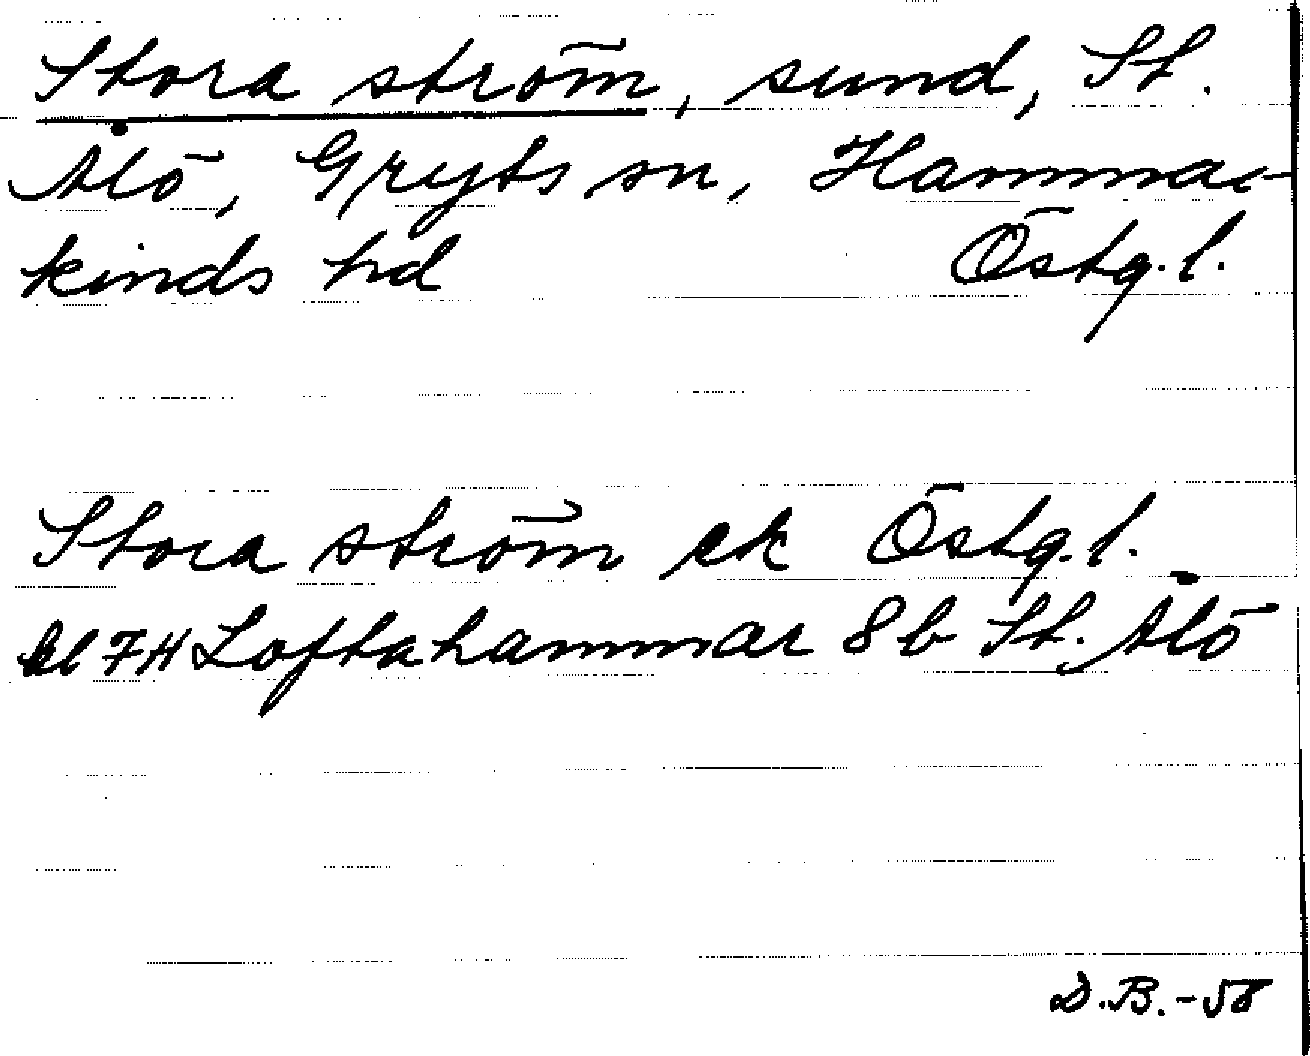 Stora ström, sund, St.
Ålö, Gryts sn, Hammar-
kinds hd Östg.l.
Stora ström ek Östg.l.
bl 7H Loftahammar 8b St. Ålö
D.B.-58